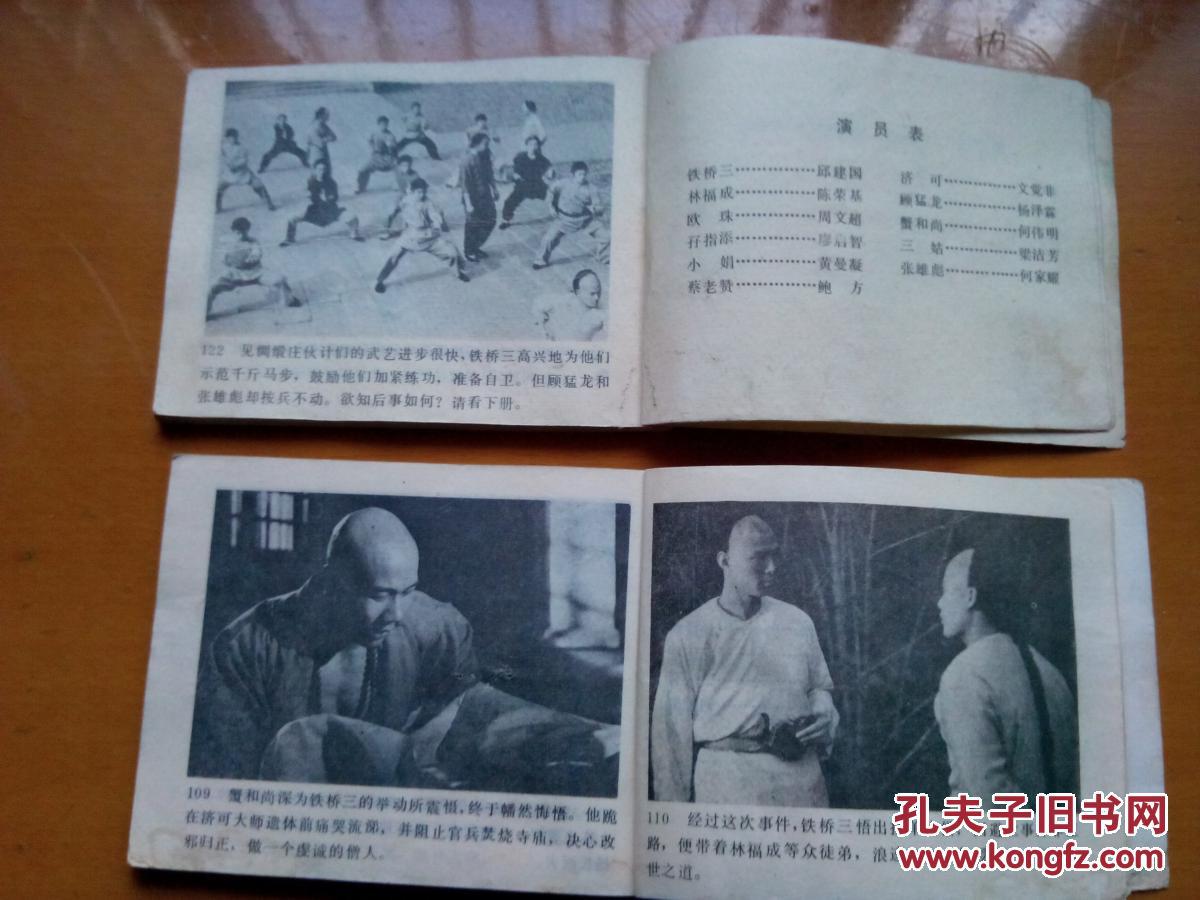 演 员 表
铁桥三……………邱建国
林福成……………陈荣基
欧 珠……………周文超
孖指添……………廖启智
小 娟……………黄曼凝
蔡老赞……………鲍 方
济 可……………文觉非
顾猛龙……………杨泽霖
蟹和尚……………何伟明
三 姑……………梁洁芳
张雄彪……………何家耀
122 见惆缎庄伙计们的武艺进步很快，铁桥三高兴地为他们
示范千斤马步，鼓励他们加紧练功，准备自卫。但顾猛龙和
张雄彪却按兵不动。欲知后事如何？请看下册。
109 蟹和尚深为铁桥三的举动所震慑，终于幡然悔悟。他跪
在济可大师遗体前痛哭流涕，并阻止官兵焚烧寺庙，决心改
邪归正，做一个虔诚的僧人。
110 经过这次事件，铁桥三悟出
路，便带着林福成等众徒弟，浪
世之道。
孔夫子旧书网
www.kongfz.com